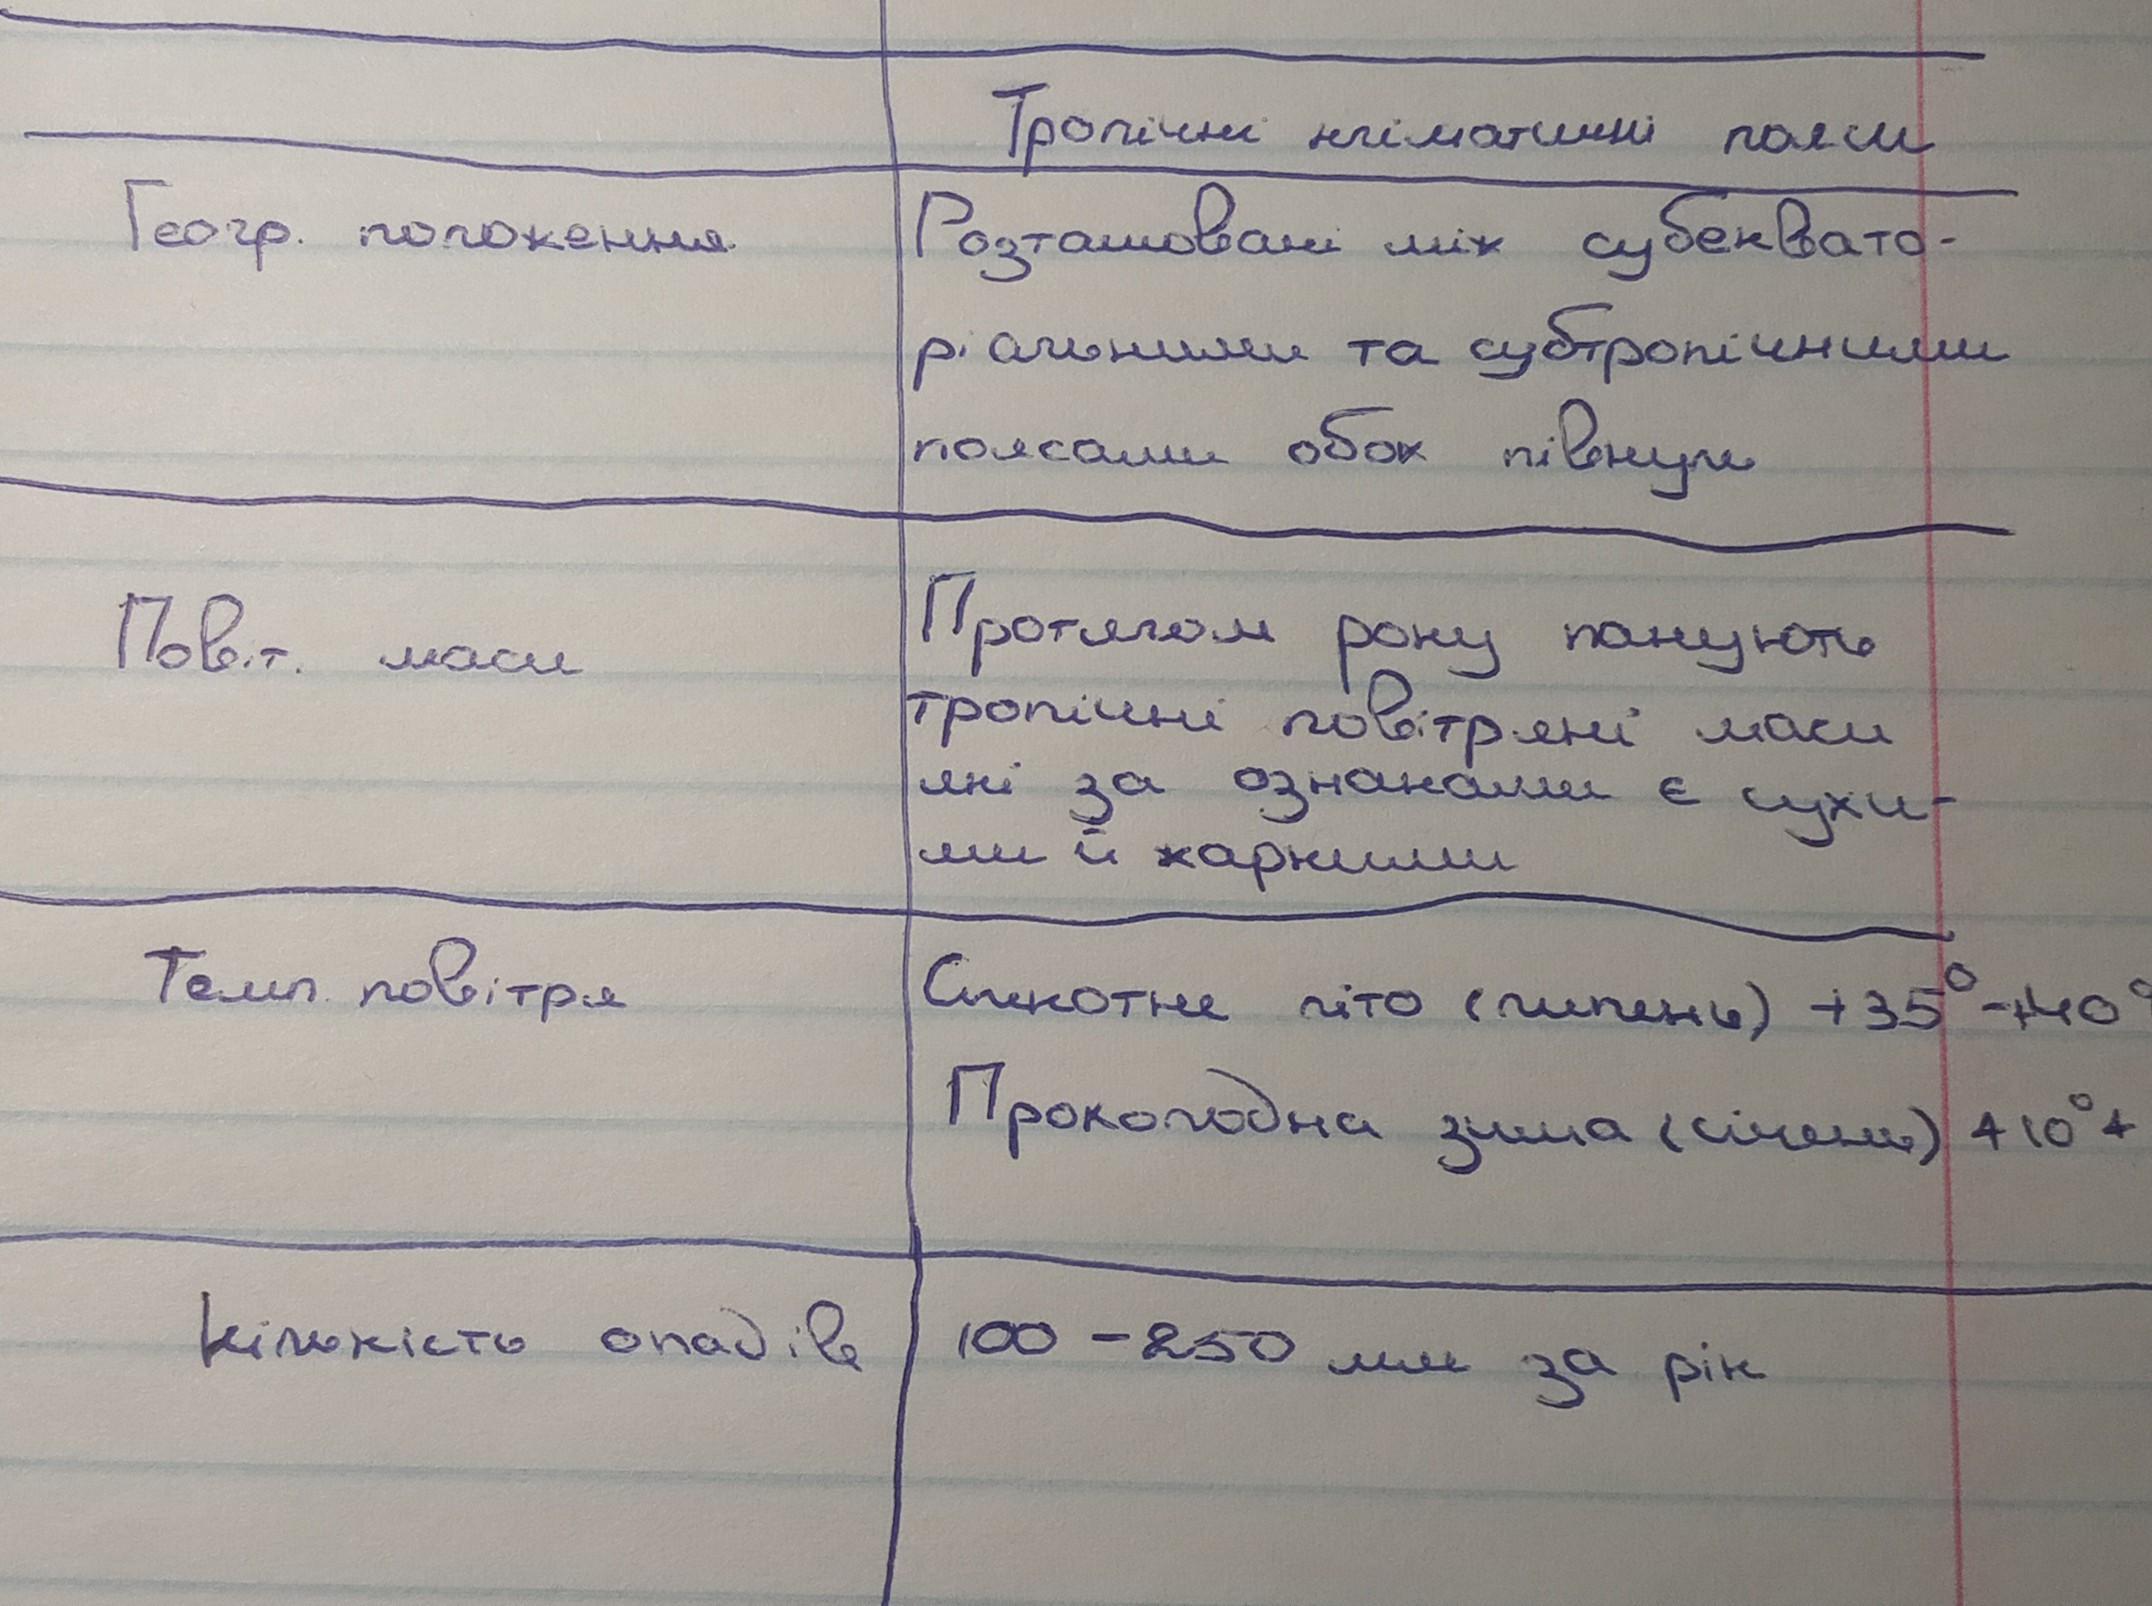 Тропічні кліматичні пояси
Геогр. положення
Розташовані між субеквато-
ріальними та субтропічними
поясами обох півкуль
Повіт. маси
Протягом року панують
тропічні повітряні маси
які за ознаками є сухи-
ми й жаркими
Темп. повітря
Спекотне літо (липень) +35°-+40°
Прохолодна зима (січень) +10°+
Кількість опадів
100-250 мм за рік